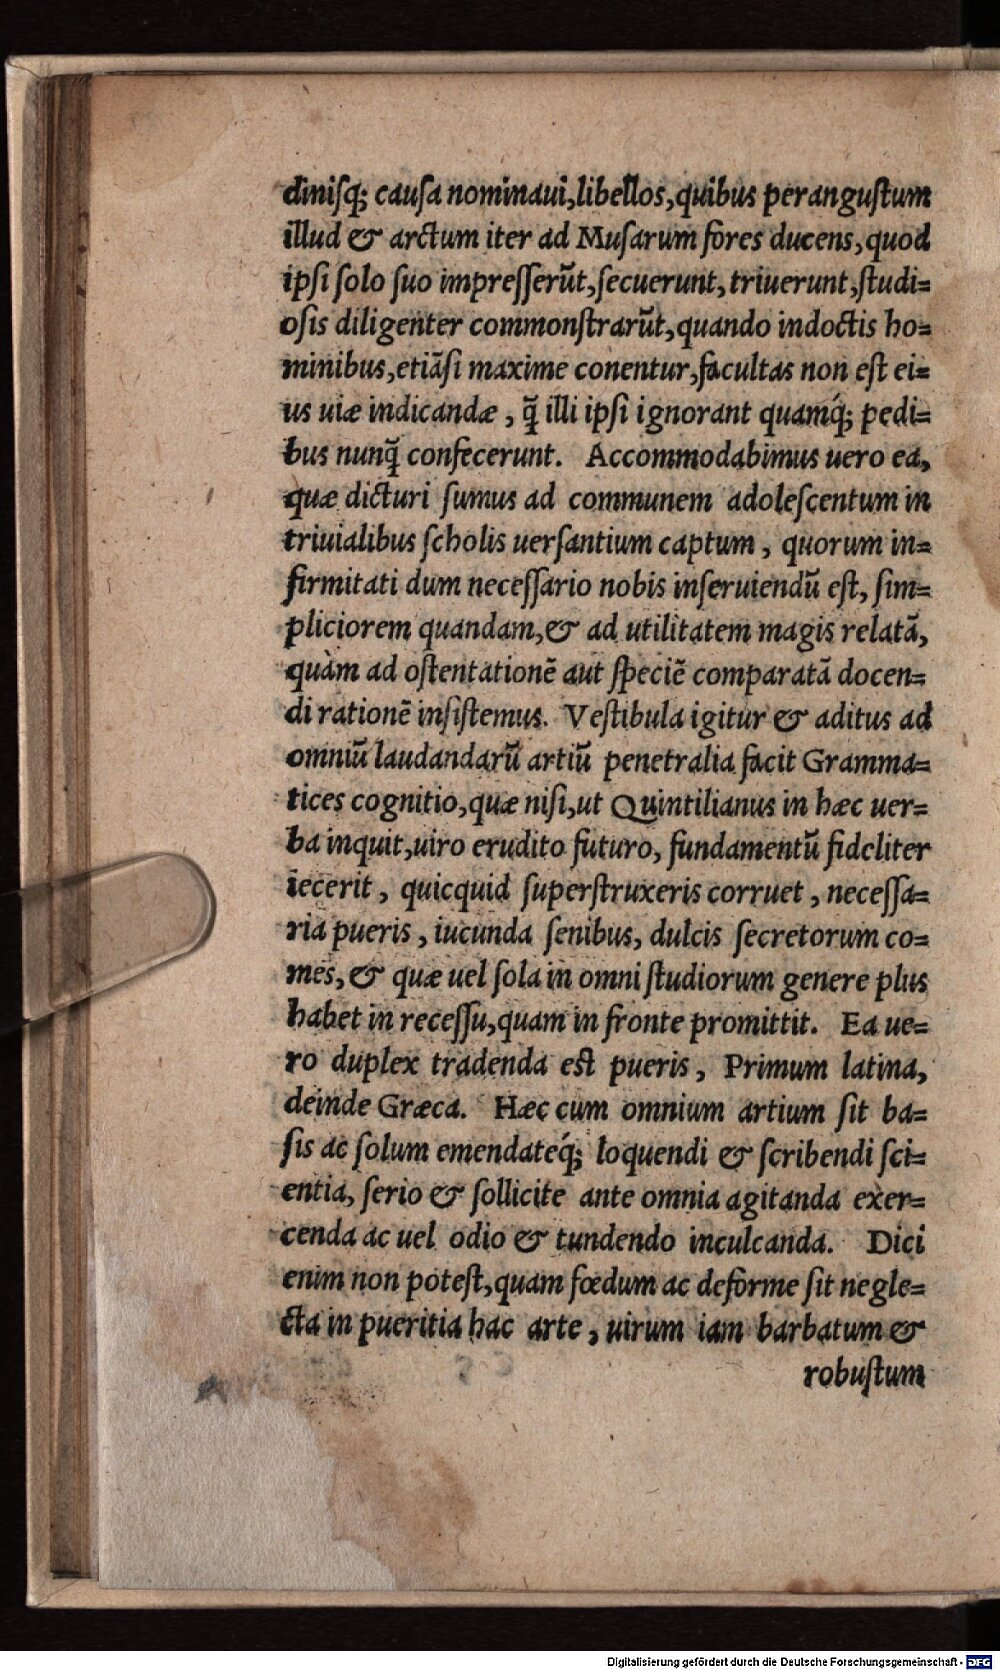 diniſq́; cauſa nominaui, libellos, quibus peranguſtum
illud & arctum iter ad Muſarum fores ducens, quod
ipſi ſolo ſuo impreſſerūt, ſecuerunt, triuerunt, ſtudi=
oſis diligenter commonſtrarūt, quando indoctis ho=
minibus, etiāſi maxime conentur, facultas non eſt ei=
us uiæ indicandæ, q̄ illi ipſi ignorant quamq́; pedi=
bus nunq̄ confecerunt. Accommodabimus uero ea,
quæ dicturi ſumus ad communem adoleſcentum in
triuialibus ſcholis uerſantium captum, quorum in=
firmitati dum neceſſario nobis inſeruiendū eſt, ſim=
pliciorem quandam, & ad utilitatem magis relatā,
quàm ad oſtentationē aut ſpeciē comparatā docen=
di rationē inſiſtemus. Veſtibula igitur & aditus ad
omniū laudandarū artiū penetralia facit Gramma=
tices cognitio, quæ niſi, ut Quintilianus in hæc uer=
ba inquit, uiro erudito futuro, fundamentū fideliter
iecerit, quicquid ſuperſtruxeris corruet, neceſſa=
ria pueris, iucunda ſenibus, dulcis ſecretorum co=
mes, & quæ uel ſola in omni ſtudiorum genere plus
habet in receſſu, quam in fronte promittit. Ea ue=
ro duplex tradenda eſt pueris, Primum latina,
deinde Græca. Hæc cum omnium artium ſit ba=
ſis ac ſolum emendateq́; loquendi & ſcribendi ſci=
entia, ſerio & ſollicite ante omnia agitanda exer=
cenda ac uel odio & tundendo inculcanda. Dici
enim non poteſt, quam fœdum ac deforme ſit negle=
cta in pueritia hac arte, uirum iam barbatum &
robuſtum
Digitalisierung gefördert durch die Deutsche Forschungsgemeinschaft - DFG